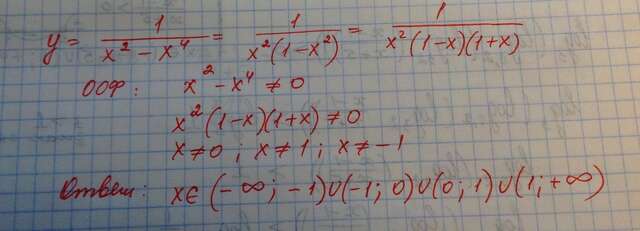 y = 1/(x² - x⁴) = 1/(x²(1-x²)) = 1/(x²(1-x)(1+x))
ООФ: x² - x⁴ ≠ 0
x²(1-x)(1+x) ≠ 0
x ≠ 0 ; x ≠ 1 ; x ≠ -1
Ответ: x ∈ (-∞; -1)∪(-1; 0)∪(0; 1)∪(1; +∞)